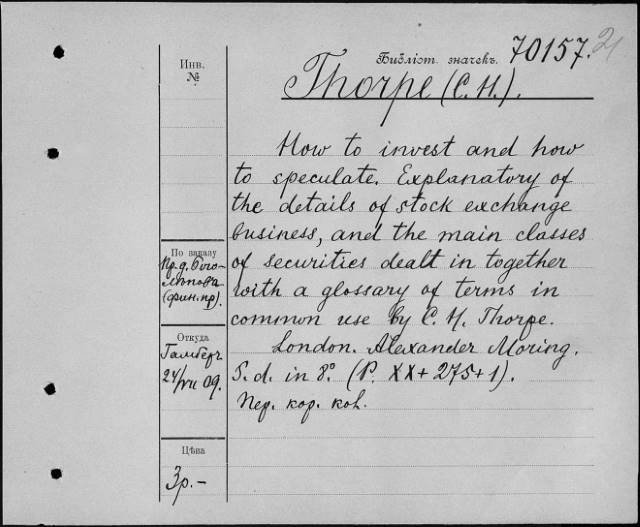 Библіот. значекъ. 70157.
Инв.
№
Thorpe (C. H.).
How to invest and how
to speculate. Explanatory of
the details of stock exchange
business, and the main classes
of securities dealt in together
with a glossary of terms in
common use by C. H. Thorpe.
London. Alexander Moring.
S. d. in 8°. (P. XX + 275 + 1).
Пер. кор. кон.
По заказу
Пр. д. Бого-
лѣпова
(фин. пр).
Откуда
Гамбергъ
24/VII 09.
Цѣна
3р. -